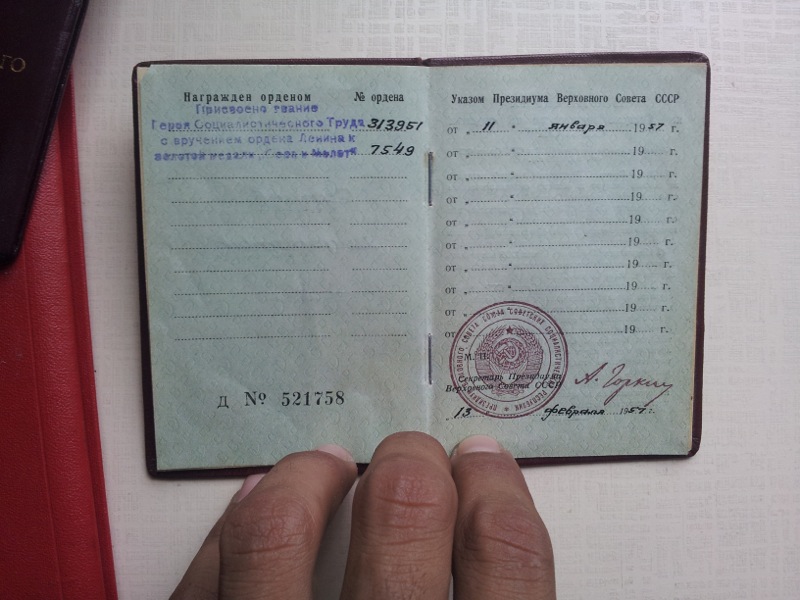 ого
Награжден орденом № ордена
Присвоено звание
Героя Социалистического Труда 313951
с вручением ордена Ленина и
золотой медали „Серп и Молот" 7549
Д № 521758
Указом Президиума Верховного Совета СССР
от „ 11 " января 1957 г.
от „ " 19 г.
от „ " 19 г.
от „ " 19 г.
от „ " 19 г.
от „ " 19 г.
от „ " 19 г.
от „ " 19 г.
от „ " 19 г.
от „ " 19 г.
М. П.
Секретарь Президиума
Верховного Совета СССР А. Горкин
„ 13 " февраля 1957 г.